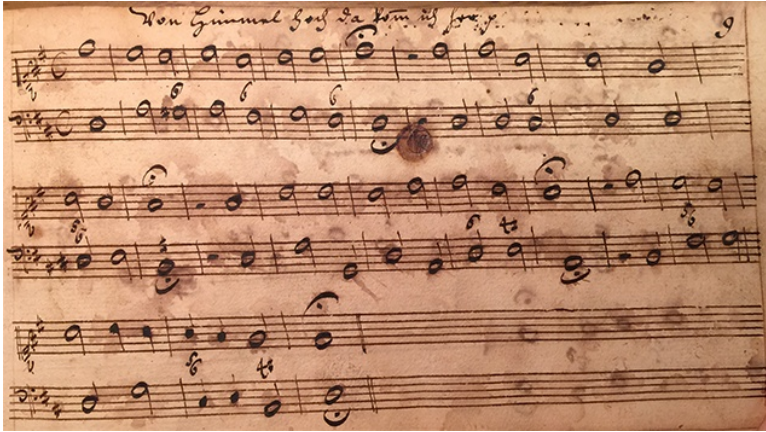 Von Himmel hoch da kom̄ ich her p. 9
6 6 6 6
5 6 6 4♯ 5 6
5 6 4♯